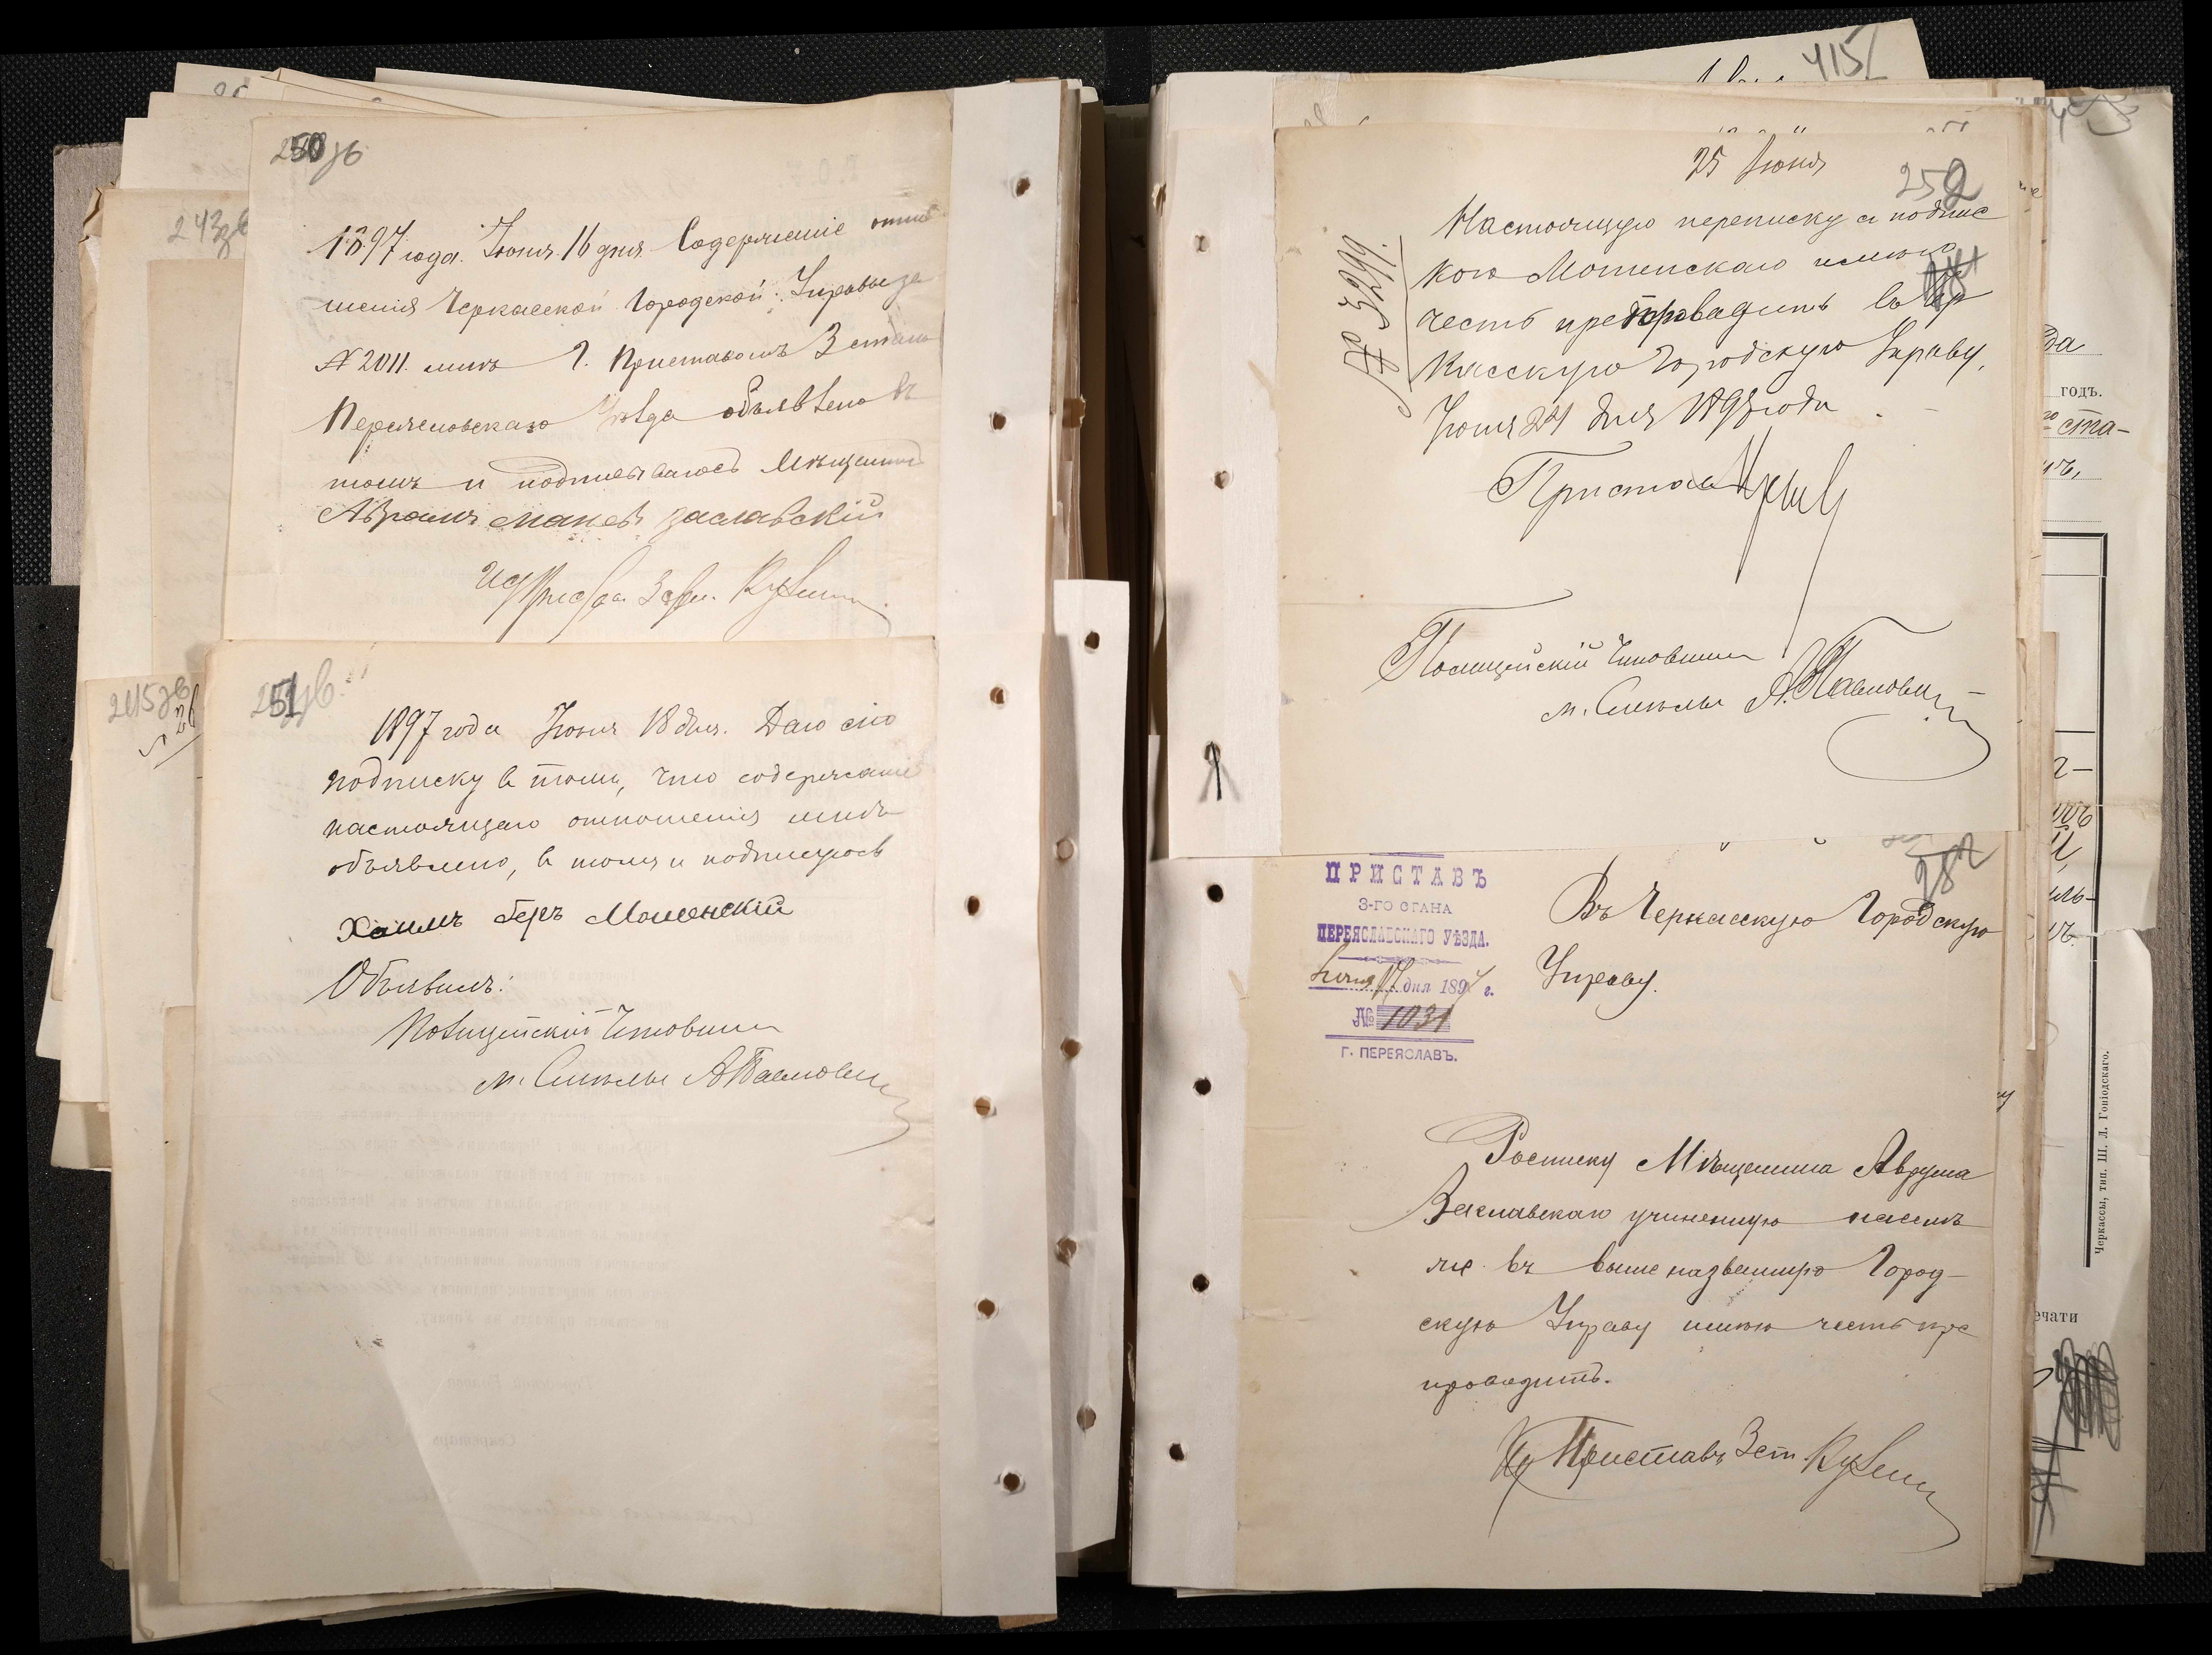 250зв
1897 года. Іюня 16 дня. Содержаніе отно
шенія Черкасской Городской Управы за
№ 2011. мнѣ Г. Приставомъ 3 стана
Переяславскаго Уѣзда объявлено въ
томъ и подписываюсь Мѣщанинъ
Аврамъ Заславскій
251зв
1897 года Іюня 18 дня. Даю сію
подписку въ томъ, что содержаніе
настоящаго отношенія мнѣ
объявлено, въ томъ и подписуюсь
Хаимъ беръ Мошенскій
Объявилъ:
Полицейскій Чиновникъ
м. Смѣлы А. Павлович
243зв
245зв
415
25 Іюня
252
№ 3299.
Настоящую переписку съ подпис
кою Мошенскаго имѣю
честь препроводить въ Чер
касскую Городскую Управу,
Іюня 24 дня 1897 года
Приставъ
Полицейскій Чиновникъ
м. Смѣлы А. Павлович
282
ПРИСТАВЪ
3-ГО СТАНА
ПЕРЕЯСЛАВСКАГО УѢЗДА.
Іюня 17 дня 1897 г.
№ 1031
Г. ПЕРЕЯСЛАВЪ.
Въ Черкасскую Городскую
Управу.
Росписку Мѣщанина Аврума
Заславскаго учиненную на семъ
же въ выше названную Город-
скую Управу имѣю честь пре
проводить.
Ид Приставъ 3 ст.
да
годъ.
го ста-
ечати
Черкассы, тип. Ш. Л. Гоніодскаго.